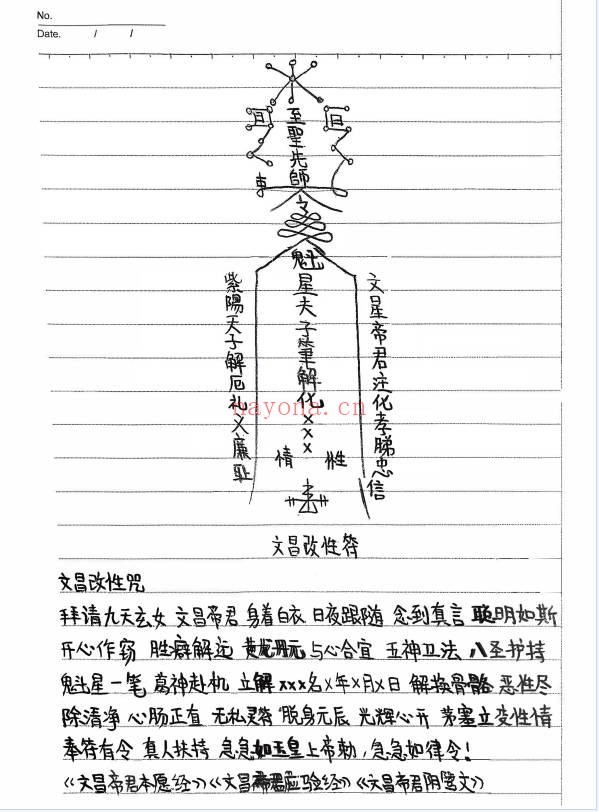 No.
Date. / /
日 日
至聖先師
東
文
魁星夫子筆解化×××
情 性
紫陽天子解厄礼义廉耻
文星帝君注化孝悌忠信
nayona.cn
文昌改性符
文昌改性咒
拜请九天玄女 文昌帝君 身着白衣 日夜跟随 念到真言 聪明如斯
开心作窃 胜癖解远 黄龙丹元 与心合宜 五神卫法 八圣护持
魁星一笔 葛神赴机 立解×××名×年×月×日 解换骨骼 恶性尽
除清净 心肠正直 无私灵符 脱身元辰 光辉心开 茅塞立变性情
奉符有令 真人扶持 急急如玉皇上帝勅，急急如律令！
《文昌帝君本愿经》《文昌帝君应验经》《文昌帝君阴骘文》